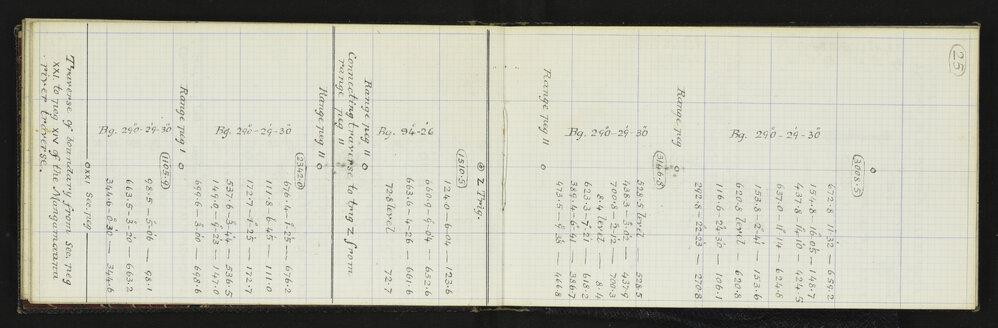 25
3008.5
672.8 11°.32' — 659.2
154.8 16.05 — 148.7
437.8 14.10 — 424.5
Bg. 290°-29'-30"
637.0 — 11.14 — 624.8
153.8 - 2.41 — 153.6
620.8 level — 620.8
116.6 - 24.30 — 106.1
292.5 - 22.23 — 270.8
Range peg
3166.8
528.5 level 528.5
438.3 — 3.02 — 437.9
Bg. 290°-29'-30"
700.8 — 2.12 — 700.3
8.4 level — 8.4
623.3 - 7.21 — 618.2
389.4 - 6.41 — 386.7
473.5 - 9.35 — 466.8
Range peg 11
Z Trig.
1510.5
124.0 — 6.04 — 123.6
660.0 — 9.04 — 652.6
Bg. 94°-26'
663.6 - 4.26 — 661.6
72.8 level 72.7
Range peg 11
Connecting traverse to trig Z from
range peg 11
Range peg 11
2342.0
676.4 - 1.25 — 676.2
111.8 - 6.45 — 111.0
Bg. 290°-29'-30"
172.7 - 1.25 — 172.7
537.6 - 3.44 — 536.5
149.0 - 9.23 — 147.0
699.6 - 3.00 — 698.6
Range peg 1
1105.9
98.5 - 5.06 — 98.1
Bg. 290°-29'-30"
663.5 - 3.20 — 663.2
344.6 - 0.30 — 344.6
XXI Sec. peg
Traverse of boundary from Sec. peg
XXI. to peg XIV of the
river traverse.